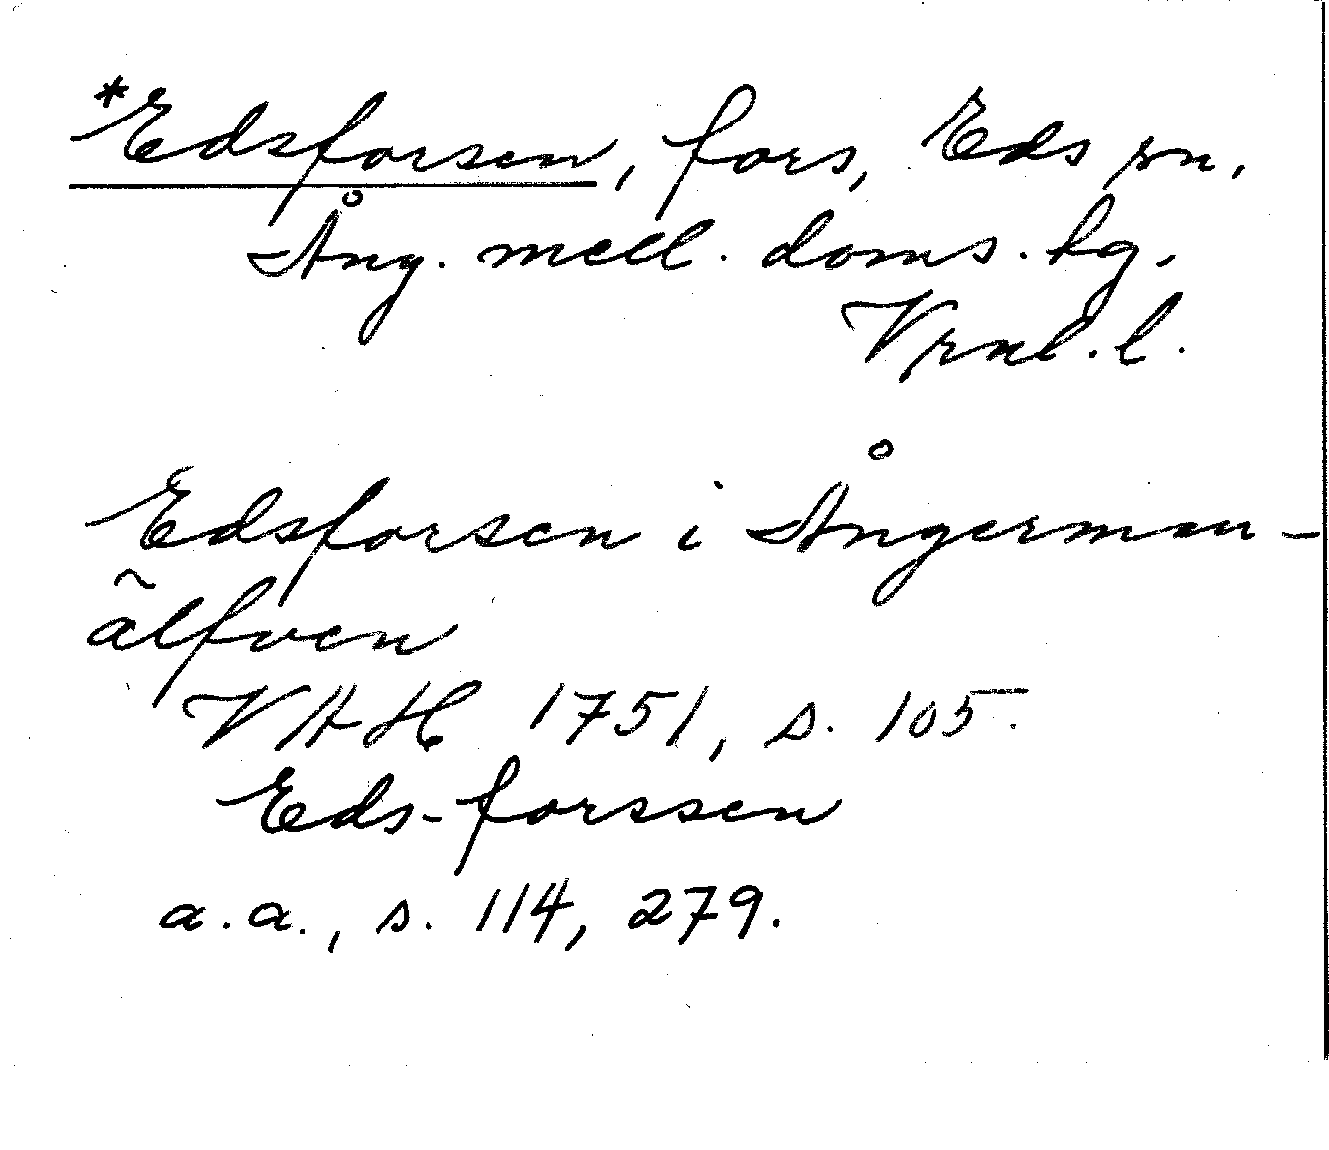 *Edsforsen, fors, Eds sn.
Ång. mell. doms. hg.
Vrnl. l.
Edsforsen i Ångerman-
älfven
VAH 1751, s. 105.
Eds-forssen
a.a., s. 114, 279.